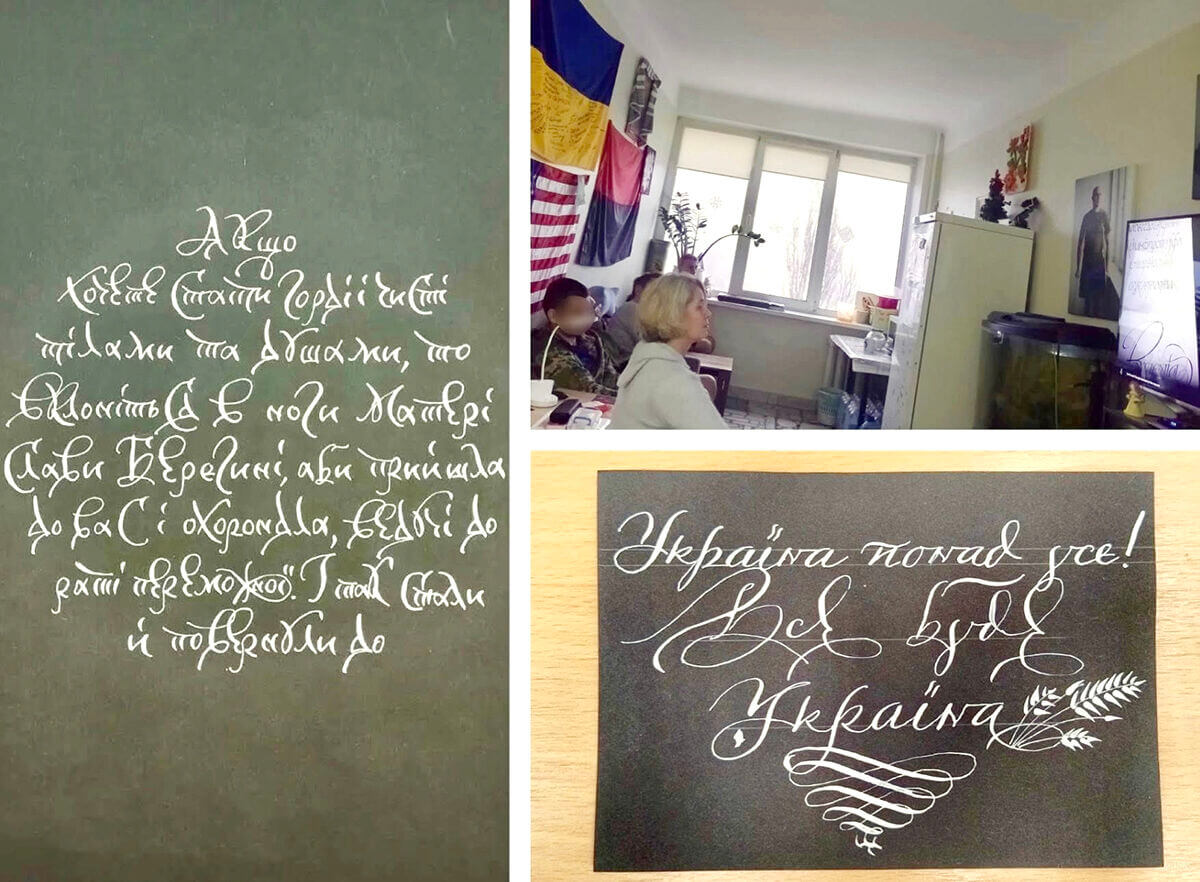 Якщо
хочете стати горді і чисті
тілами та душами, то
вклоніться в ноги Матері
Слави Берегині, аби прийшла
до вас і охороняла, ведучі до
раті переможної. І так стали
й повернули до
Україна понад усе!
Все буде
Україна